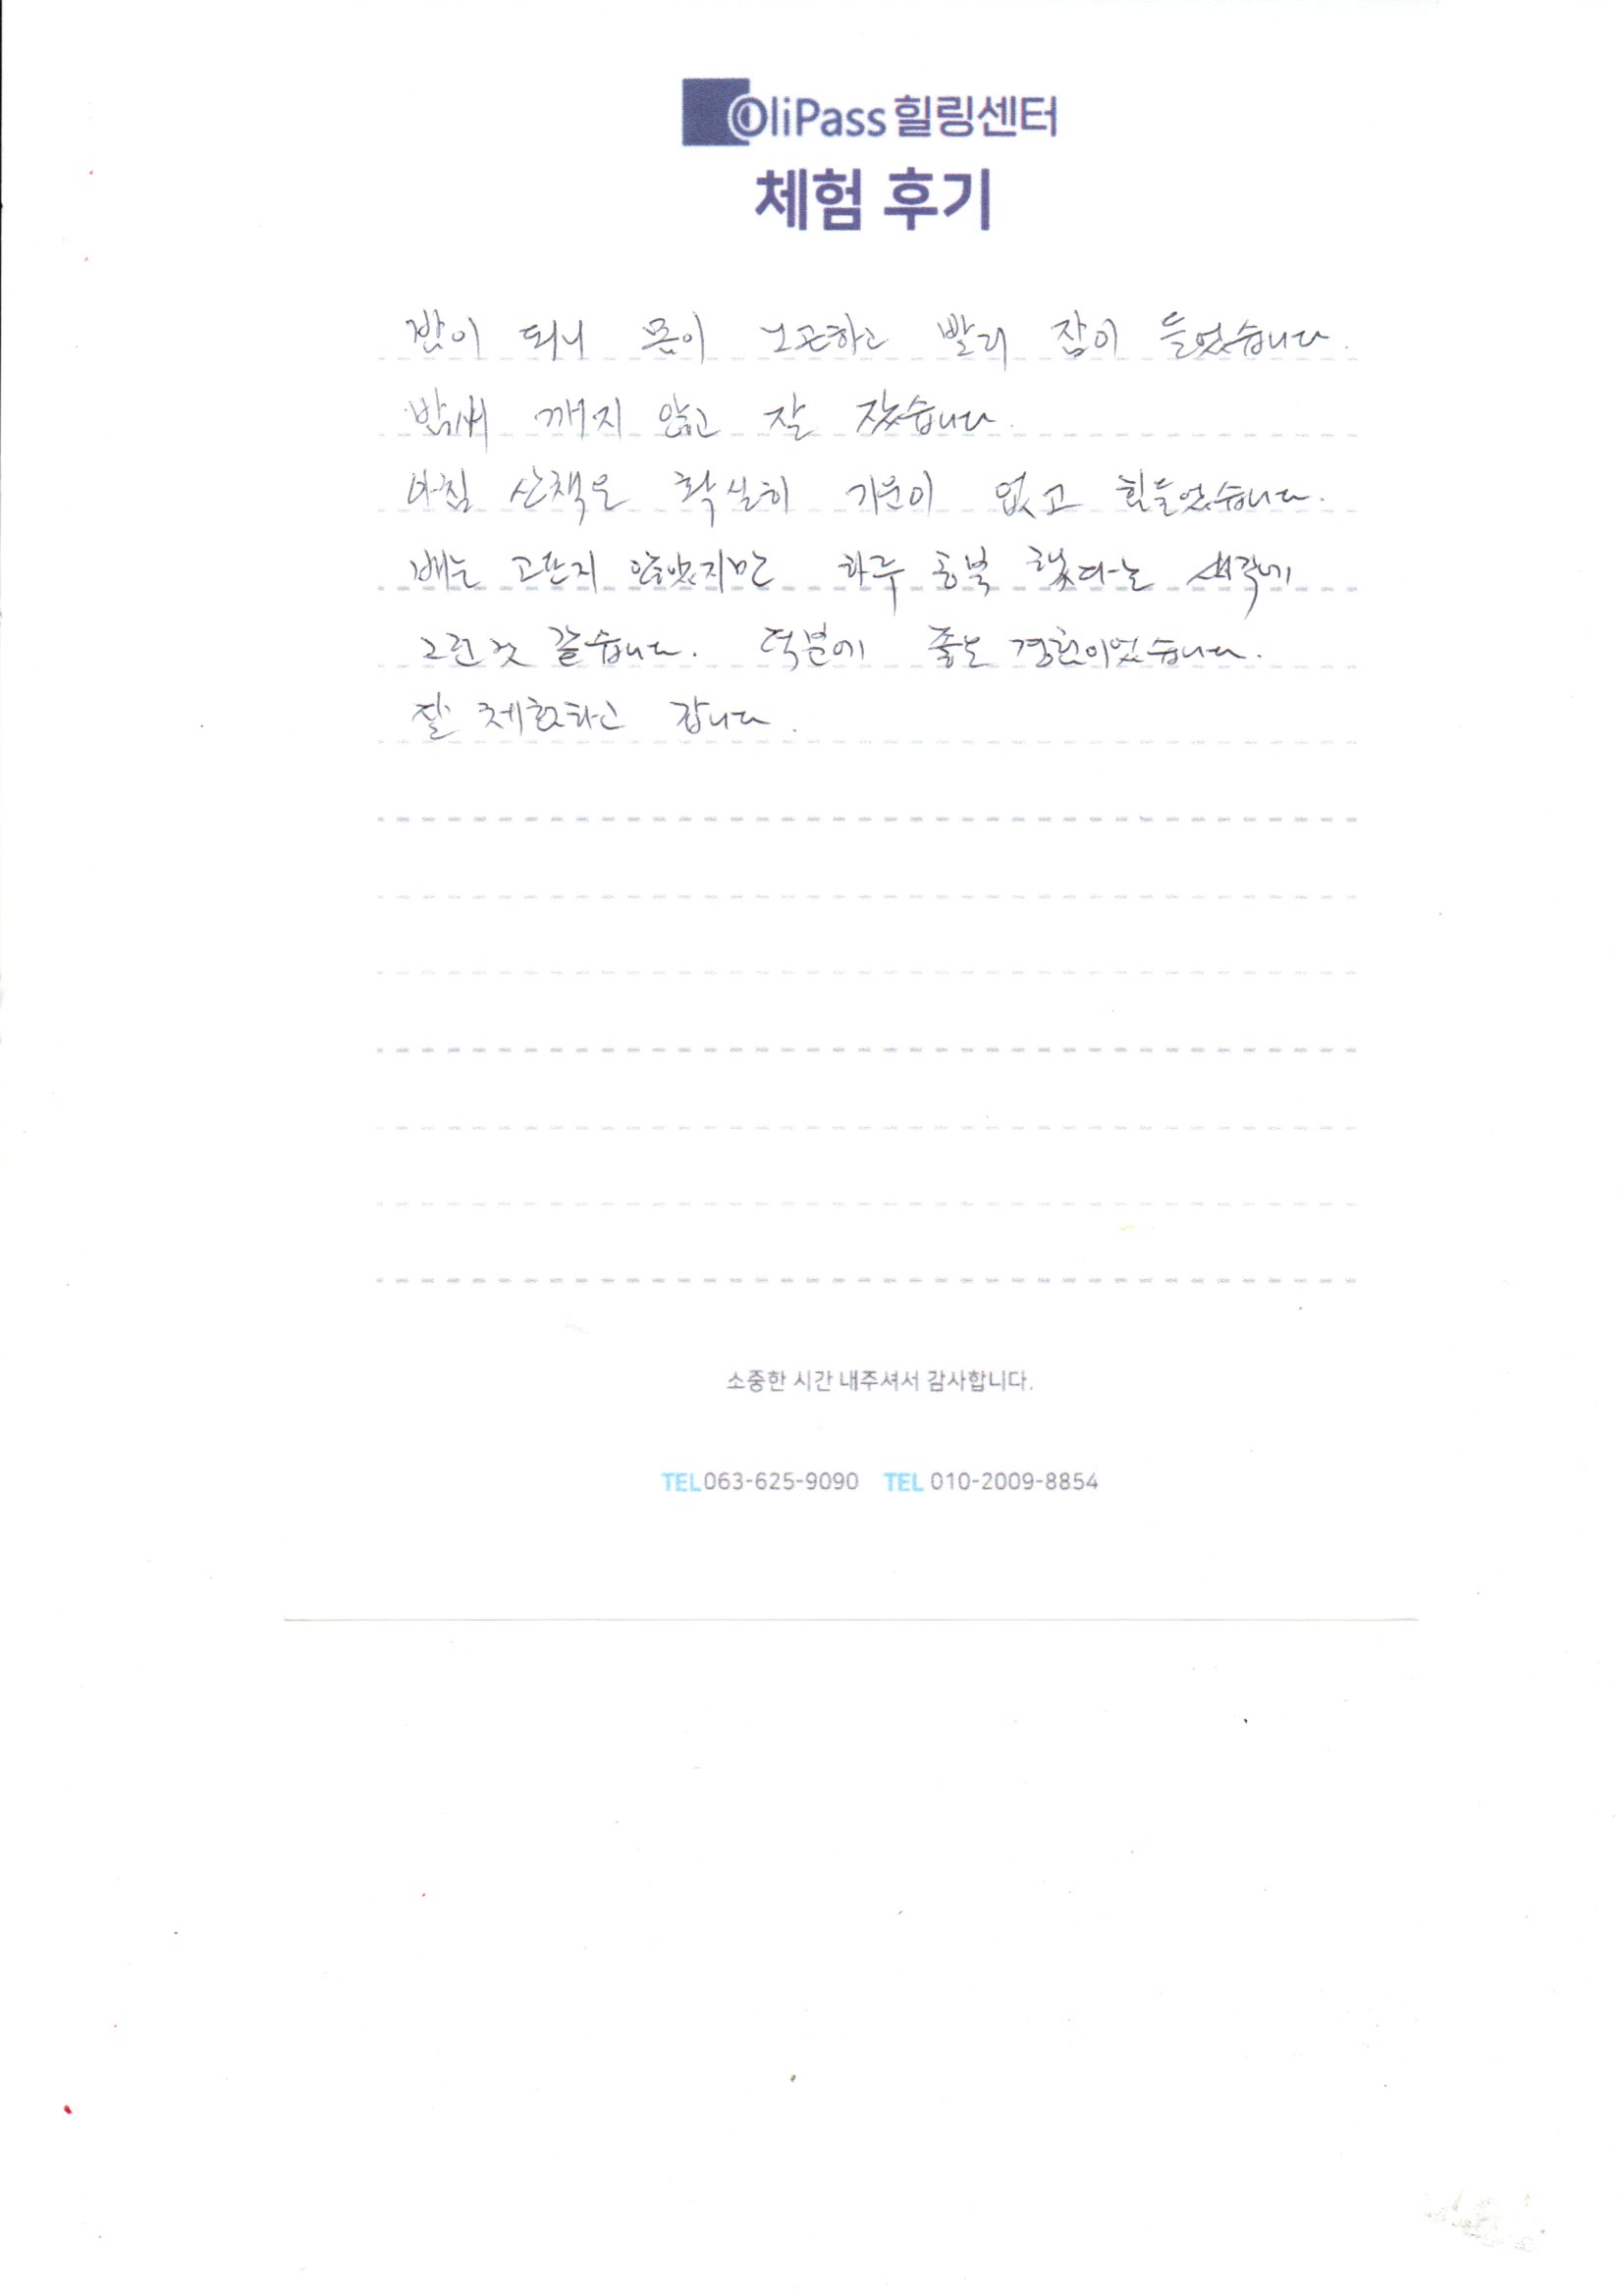 OliPass 힐링센터
체험 후기
밤이 되니 몸이 노곤하고 빨리 잠이 들었습니다.
밤새 깨지 않고 잘 잤습니다.
아침 산책은 확실히 기운이 없고 힘들었습니다.
배는 고프지 않았지만 하루 종일 했다는 생각에
그런것 같습니다. 덕분에 좋은 경험이었습니다.
잘 체험하고 갑니다.
소중한 시간 내주셔서 감사합니다.
TEL 063-625-9090 TEL 010-2009-8854